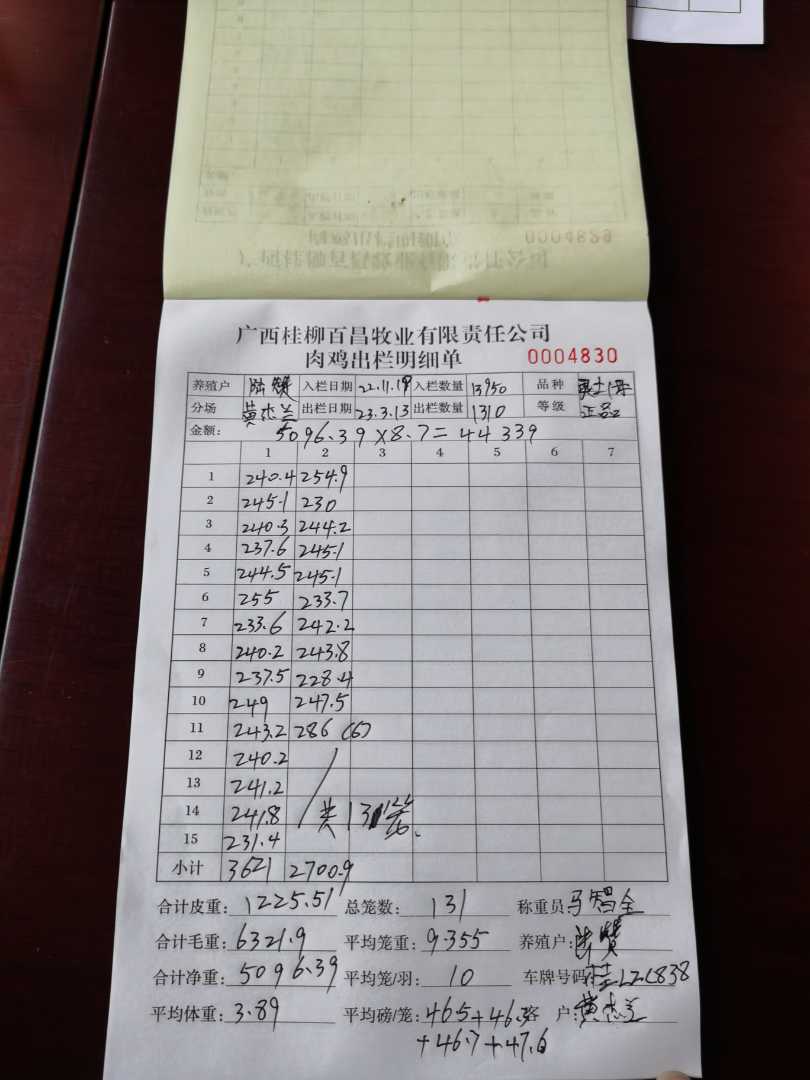 0004829
广西桂柳百昌牧业有限责任公司
肉鸡出栏明细单 0004830
养殖户 入栏日期 22.11.19 入栏数量 13950 品种
分场 黄杰兰 出栏日期 23.3.13 出栏数量 1310 等级 正品
金额: 5096.39×8.7=44339
1 2 3 4 5 6 7
1 240.4 254.9
2 245.1 230
3 240.3 244.2
4 237.6 245.1
5 244.5 245.1
6 255 233.7
7 233.6 242.2
8 240.2 243.8
9 237.5 228.4
10 249 247.5
11 243.2 286 (6)
12 240.2
13 241.2
14 241.8 共131笼
15 231.4
小计 3621 2700.9
合计皮重: 1225.51 总笼数: 131 称重员 马智全
合计毛重: 6321.9 平均笼重: 9.355 养殖户:
合计净重: 5096.39 平均笼/羽: 10 车牌号码
平均体重: 3.89 平均磅/笼: 46.5+46.3 客 户: 黄杰兰
+46.7+47.6